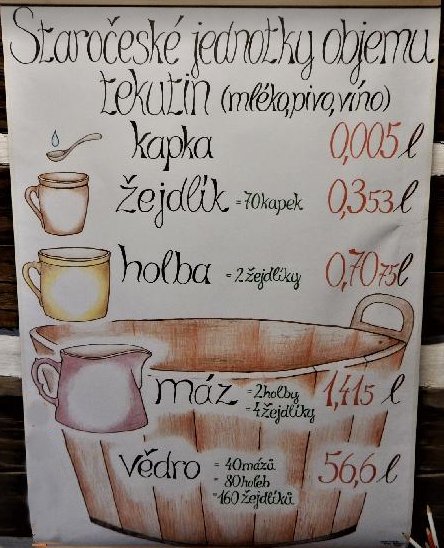 Staročeské jednotky objemu
tekutin (mléko, pivo, víno)
kapka 0,005 l
žejdlík = 70 kapek 0,353 l
holba = 2 žejdlíky 0,7075 l
máz = 2 holby = 4 žejdlíky 1,415 l
vědro = 40 mázů = 80 holeb = 160 žejdlíků 56,6 l